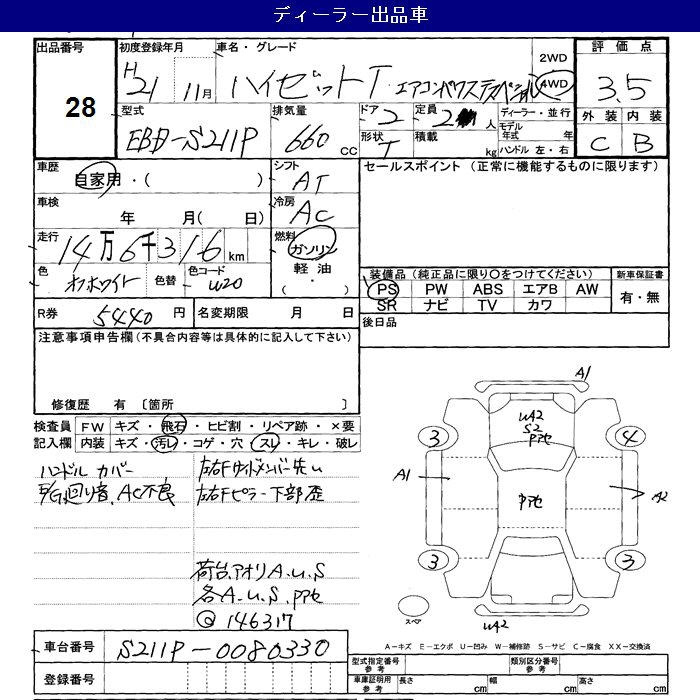 ディーラー出品車
出品番号 初度登録年月 車名・グレード 2WD 評価点
28 H21 11月 ハイゼットT エアコンパワステスペシャル 4WD 3.5
型式 排気量 ドア 定員 ディーラー・並行 外装 内装
EBD-S211P 660 CC 2 2 人 モデル年式 年 C B
形状 T 積載 kg ハンドル 左・右
車歴 シフト セールスポイント (正常に機能するものに限ります)
自家用・( ) AT
車検 冷房
年 月( 日) AC
走行 燃料
14万6千316 km ガソリン
色 色替 色コード 軽油 装備品 (純正品に限り○をつけてください) 新車保証書
オフホワイト W20 (・) PS PW ABS エアB AW 有・無
SR ナビ TV カワ
R券 5440 円 名変期限 月 日 後日品
注意事項申告欄(不具合内容等は具体的に記入して下さい)
修復歴 有 〔箇所 〕
検査員 FW キズ・飛石・ヒビ割・リペア跡・×要
記入欄 内装 キズ・汚レ・コゲ・穴・スレ・キレ・破レ
ハンドル カバー
E/G廻り音、AC不良
左右Fサイドメンバー先い
左右Fピラー下部歪
荷台アオリA.U.S
各A.U.S. pﾀﾋ
146317
車台番号 S211P-0080330
登録番号
A1
WA2
S2
3 4
A1 A2
3 3
スペア
WA2
A-キズ E-エクボ U-凹み W-補修跡 S-サビ C-腐食 XX-交換済
型式指定番号 参考 類別区分番号 参考
車庫証明用 参考 長さ cm 幅 cm 高さ cm